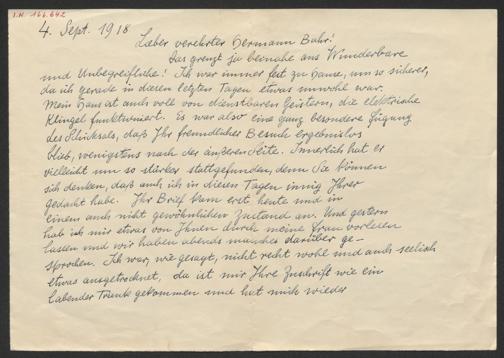 I.N. 166.642
4. Sept. 1918
Lieber verehrter Hermann Bahr!
Das grenzt ja beinahe ans Wunderbare
und Unbegreifliche! Ich war immer fest zu Hause, um so sicherer,
da ich gerade in diesen letzten Tagen etwas unwohl war.
Mein Haus ist auch voll von dienstbaren Geistern, die elektrische
Klingel funktioniert. Es war also eine ganz besondere Fügung
des Schicksals, daß Ihr freundlicher Besuch ergebnislos
blieb, wenigstens nach der äußeren Seite. Innerlich hat er
vielleicht um so stärker stattgefunden, denn Sie können
sich denken, daß auch ich in diesen Tagen innig Ihrer
gedacht habe. Ihr Brief kam erst heute und in
einem auch nicht gewöhnlichen Zustand an. Und gestern
hab ich mir etwas von Ihnen durch meine Frau vorlesen
lassen und wir haben abends manches darüber ge-
sprochen. Ich war, wie gesagt, nicht recht wohl und auch seelisch
etwas ausgetrocknet, da ist mir Ihre Zuschrift wie ein
labender Trunk gekommen und hat mich wieder